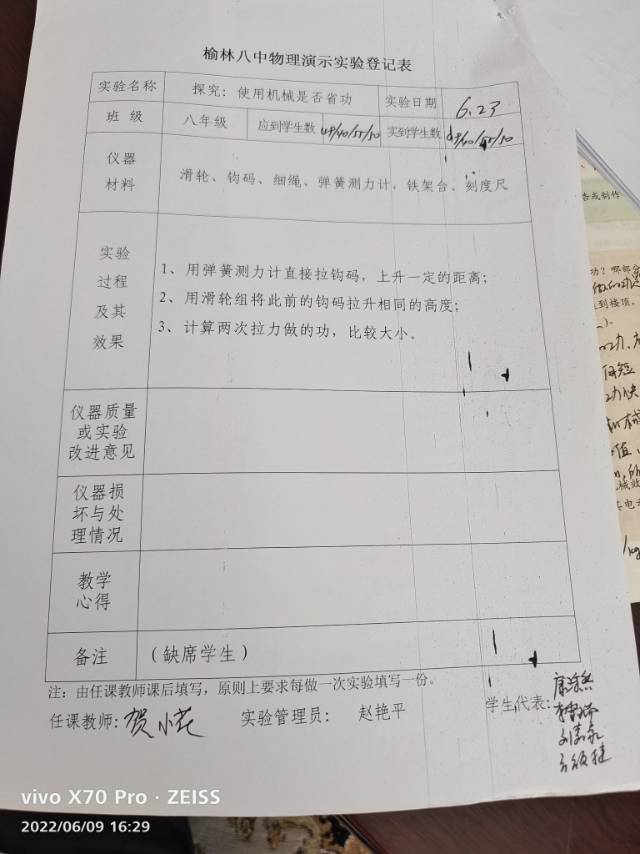 榆林八中物理演示实验登记表
实验名称 探究：使用机械是否省功 实验日期 6.23
班 级 八年级 应到学生数 实到学生数
仪器
材料
滑轮、钩码、细绳、弹簧测力计，铁架台、刻度尺
实验
过程
及其
效果
1、用弹簧测力计直接拉钩码，上升一定的距离；
2、用滑轮组将此前的钩码拉升相同的高度；
3、计算两次拉力做的功，比较大小。
仪器质量
或实验
改进意见
仪器损
坏与处
理情况
教学
心得
备注 （缺席学生）
注：由任课教师课后填写，原则上要求每做一次实验填写一份。
任课教师：贺小花 实验管理员： 赵艳平 学生代表：
告或制作
到楼顶，
vivo X70 Pro · ZEISS
2022/06/09 16:29